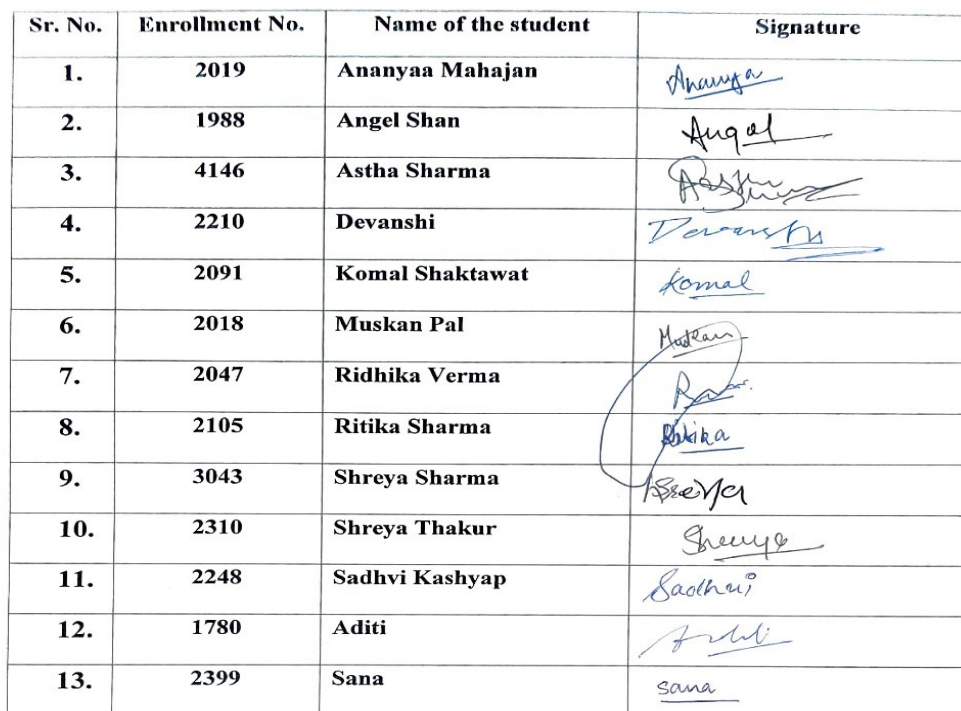 Sr. No. Enrollment No. Name of the student Signature
1. 2019 Ananyaa Mahajan Ananya
2. 1988 Angel Shan Angel
3. 4146 Astha Sharma
4. 2210 Devanshi Devanshi
5. 2091 Komal Shaktawat Komal
6. 2018 Muskan Pal Muskan
7. 2047 Ridhika Verma
8. 2105 Ritika Sharma Ritika
9. 3043 Shreya Sharma
10. 2310 Shreya Thakur Shreya
11. 2248 Sadhvi Kashyap Sadhvi
12. 1780 Aditi Aditi
13. 2399 Sana Sana